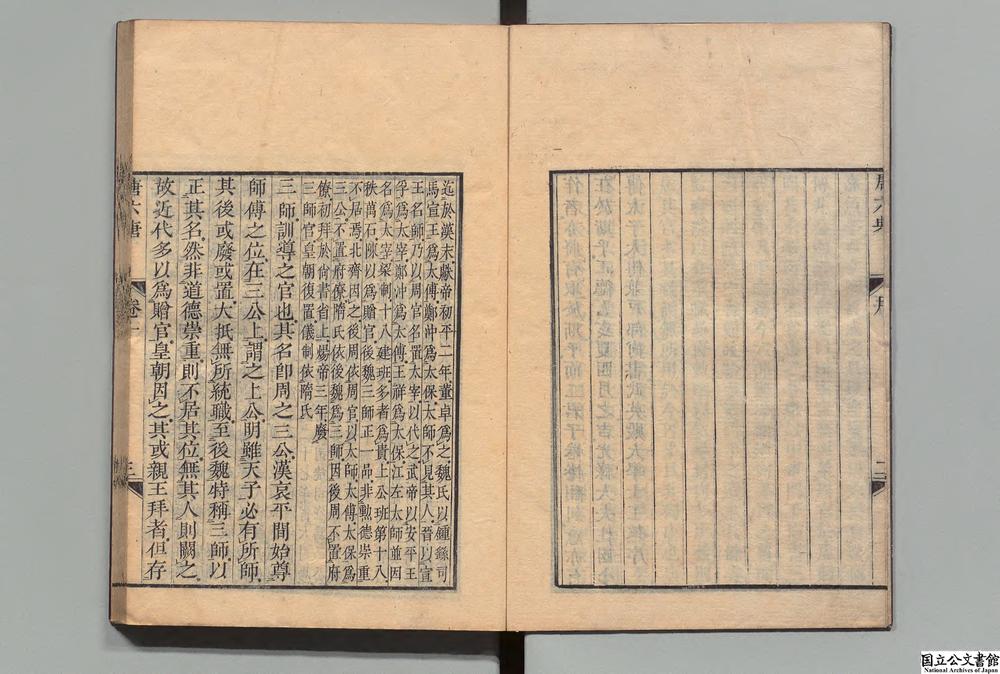 唐六典 序 二
迄於漢末獻帝初平二年董卓爲之魏氏以鍾繇司
馬宣王爲太傅鄭沖爲太保太師不見其人晉以宣
王名師乃以周官名置太宰以代之武帝以安平王
孚爲太宰鄭沖爲太傅王祥爲太保江左太師並因
名爲太宰梁制十八建班多者爲貴上公班第十八
秩萬石陳以爲贈官後魏三師正一品非勳德崇重
不居焉北齊因之後周依周官以太師太傅太保爲
三公不置府僚隋氏依後魏爲三師因後周不置府
僚初拜於尚書省上煬帝三年廢
三師官皇朝復置儀制依隋氏
三師訓導之官也其名卽周之三公漢哀平間始尊
師傅之位在三公上謂之上公明雖天子必有所師
其後或廢或置大抵無所統職至後魏特稱三師以
正其名然非道德崇重則不居其位無其人則闕之
故近代多以爲贈官皇朝因之其或親王拜者但存
唐六唐 卷一 三
国立公文書館
National Archives of Japan